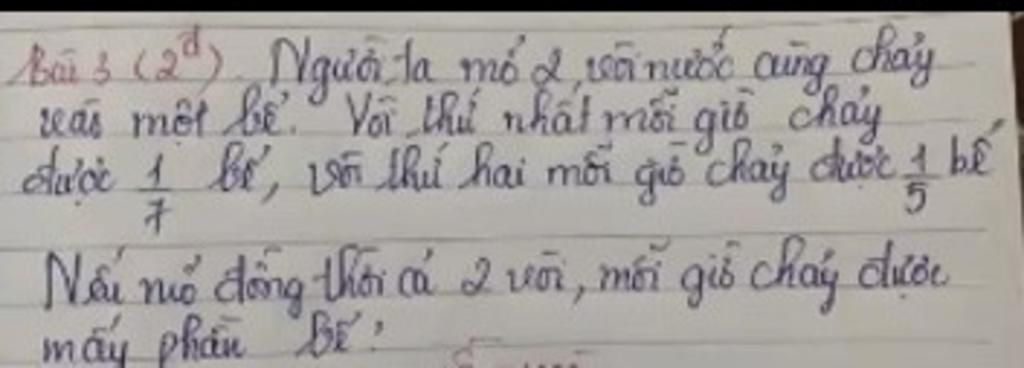 Bài 3 (2đ). Người ta mở 2 vòi nước cùng chảy
vào một bể. Vòi thứ nhất mỗi giờ chảy
được 1/7 bể, vòi thứ hai mỗi giờ chảy được 1/5 bể
Nếu mở đồng thời cả 2 vòi, mỗi giờ chảy được
mấy phần bể?